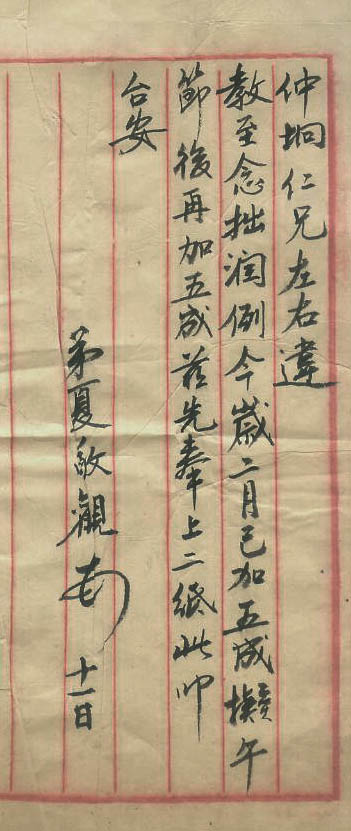 仲坰仁兄左右違
教至念拙潤例今歲二月已加五成擬午
節後再加五成茲先奉上二紙此叩
台安
弟夏敬觀頓 十一日